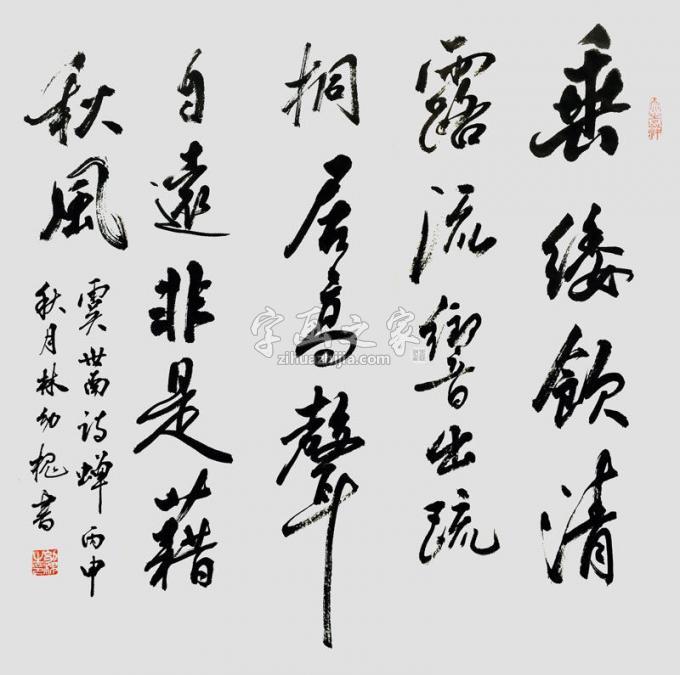 垂緌飲清
露流響出疏
桐居高聲
自遠非是藉
秋風
虞世南詩蟬丙申
秋月林幼槐書
字画之家
zihuazhijia.com